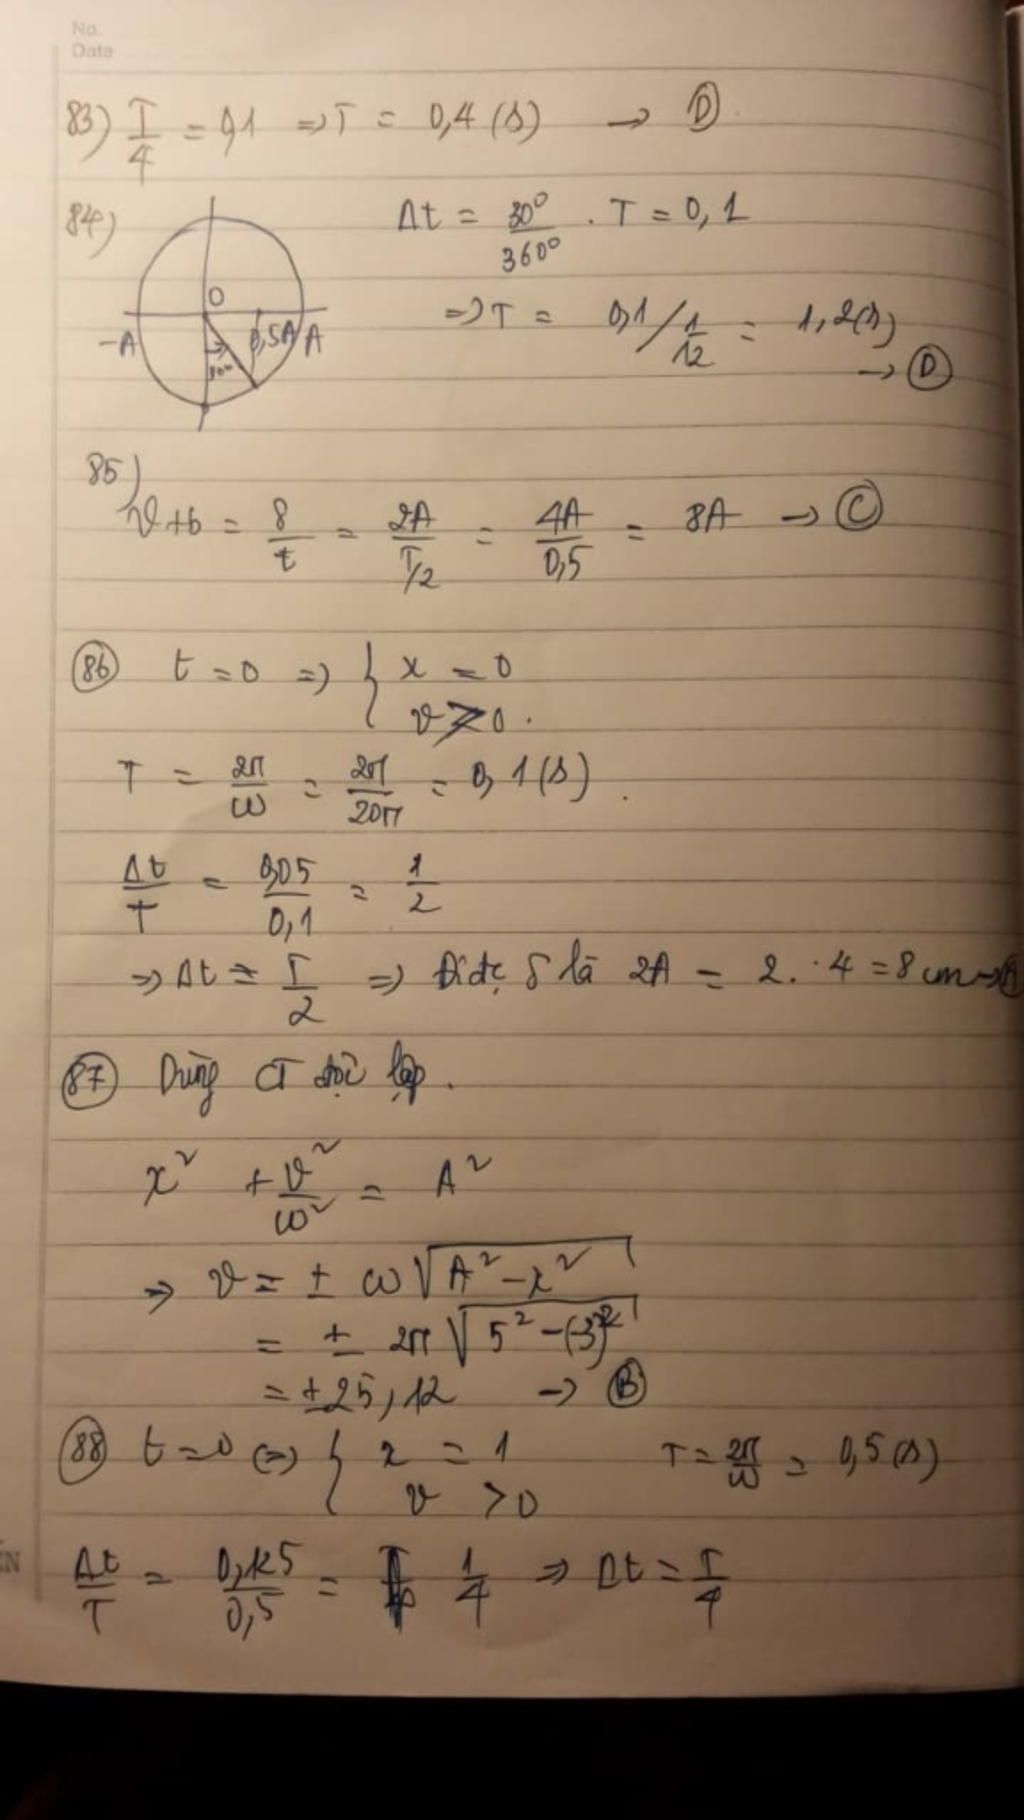 No.
Date
83) T/4 = 0,1 => T = 0,4 (s) → D
84) Δt = 30°/360° . T = 0,1
O
-A 0,5A A
30°
=> T = 0,1 / 1/12 = 1,2 (s)
→ D
85)
vtb = S/t = 2A/T/2 = 4A/0,5 = 8A → C
86 t = 0 => { x = 0
v > 0 .
T = 2π/ω = 2π/20π = 0,1 (s) .
Δt/T = 0,05/0,1 = 1/2
=> Δt = T/2 => Đi đc S là 2A = 2 . 4 = 8 cm → A
87 Dùng CT độc lập .
x² + v²/ω² = A²
=> v = ± ω√A² - x²
= ± 2π √5² - (-3)²
= ± 25,12 → B
88 t = 0 (=>) { x = 1 T = 2π/ω = 0,5 (s)
v > 0
Δt/T = 0,125/0,5 = 1/4 => Δt = T/4